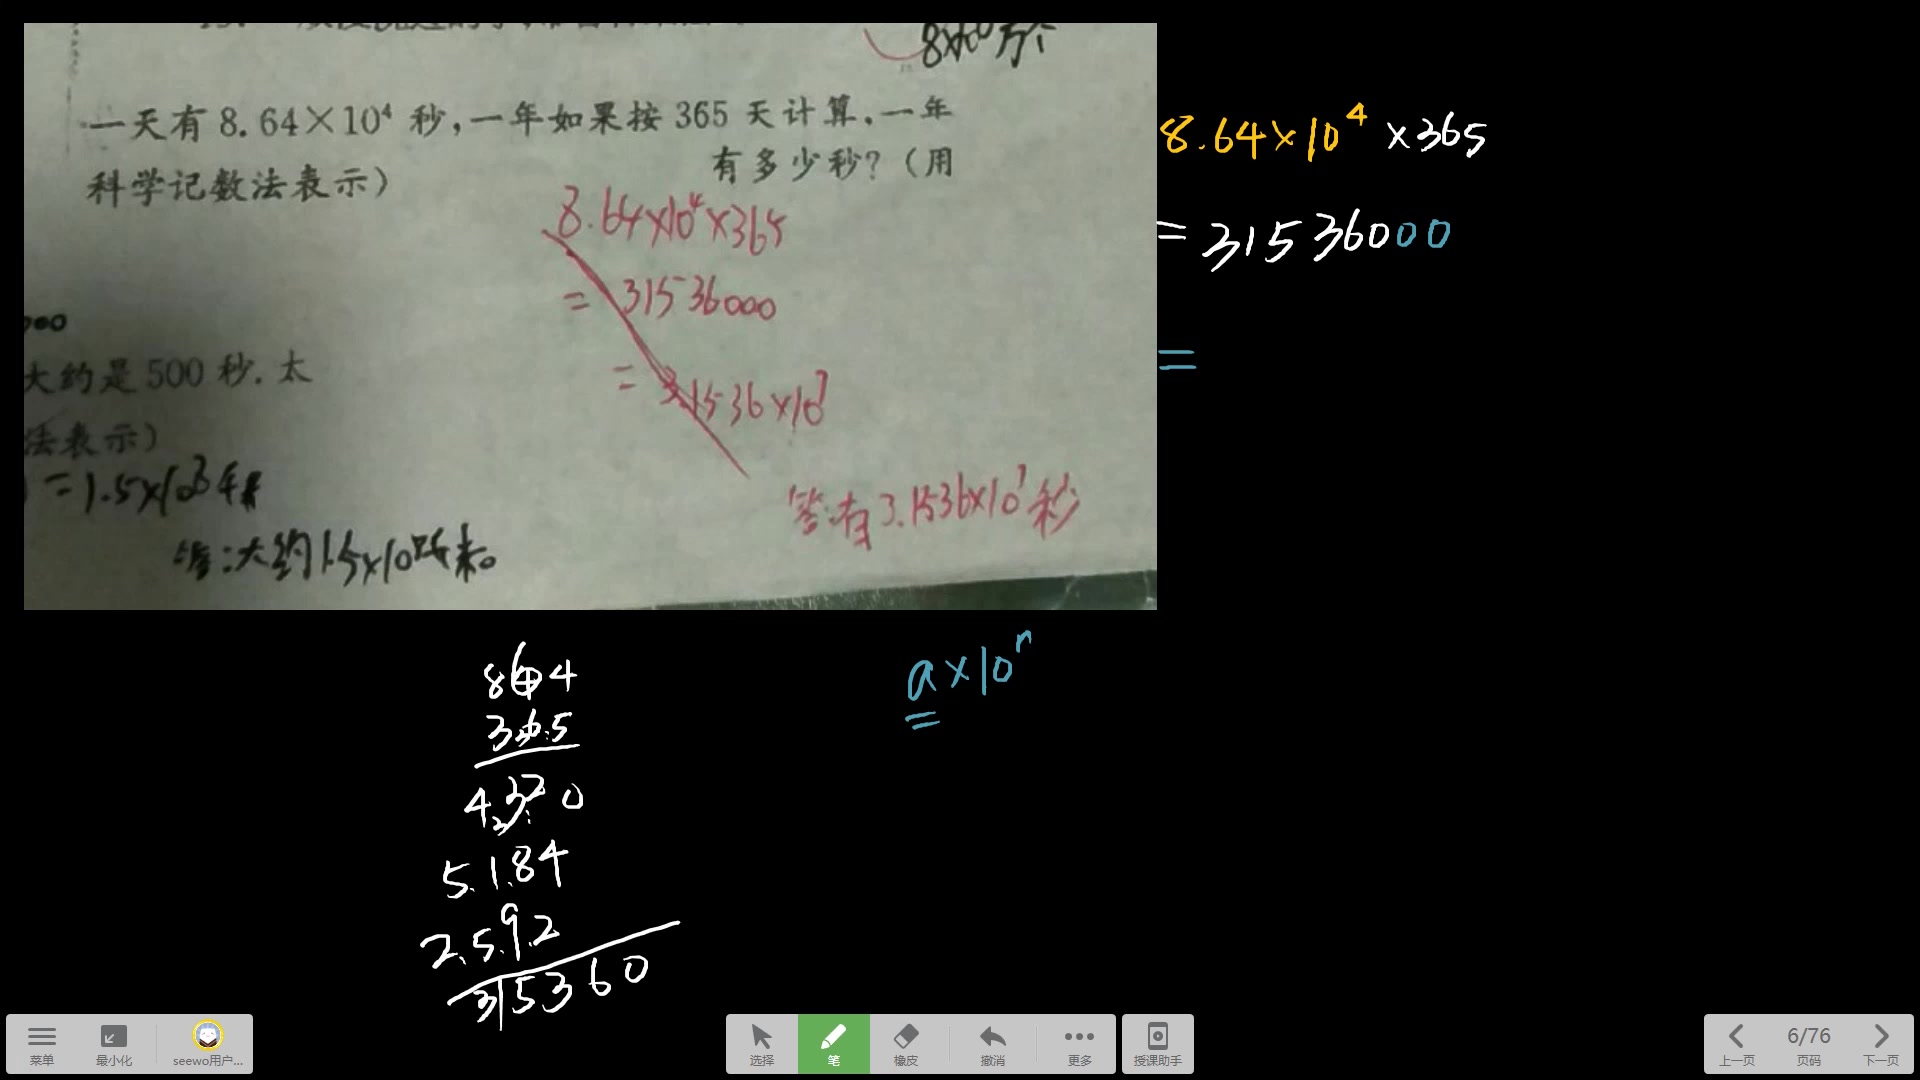 8×10⁶万个
一天有 8.64×10⁴ 秒,一年如果按 365 天计算,一年
有多少秒?(用
科学记数法表示)
8.64×10⁴×365
= 31536000
= 3.1536×10⁷
答:有3.1536×10⁷秒
000
大约是 500 秒. 太
法表示)
=1.5×10⁸千米
答:大约1.5×10⁸千米。
8.64×10⁴ ×365
= 31536000
=
864
365
4320
5184
2592
315360
a×10ⁿ
菜单
最小化
seewo用户...
选择
笔
橡皮
撤消
更多
授课助手
上一页
6/76
页码
下一页